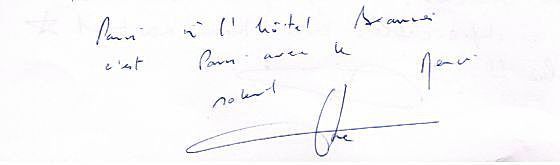 Paris à l'hôtel Beauvais
c'est Paris avec le
soleil Merci